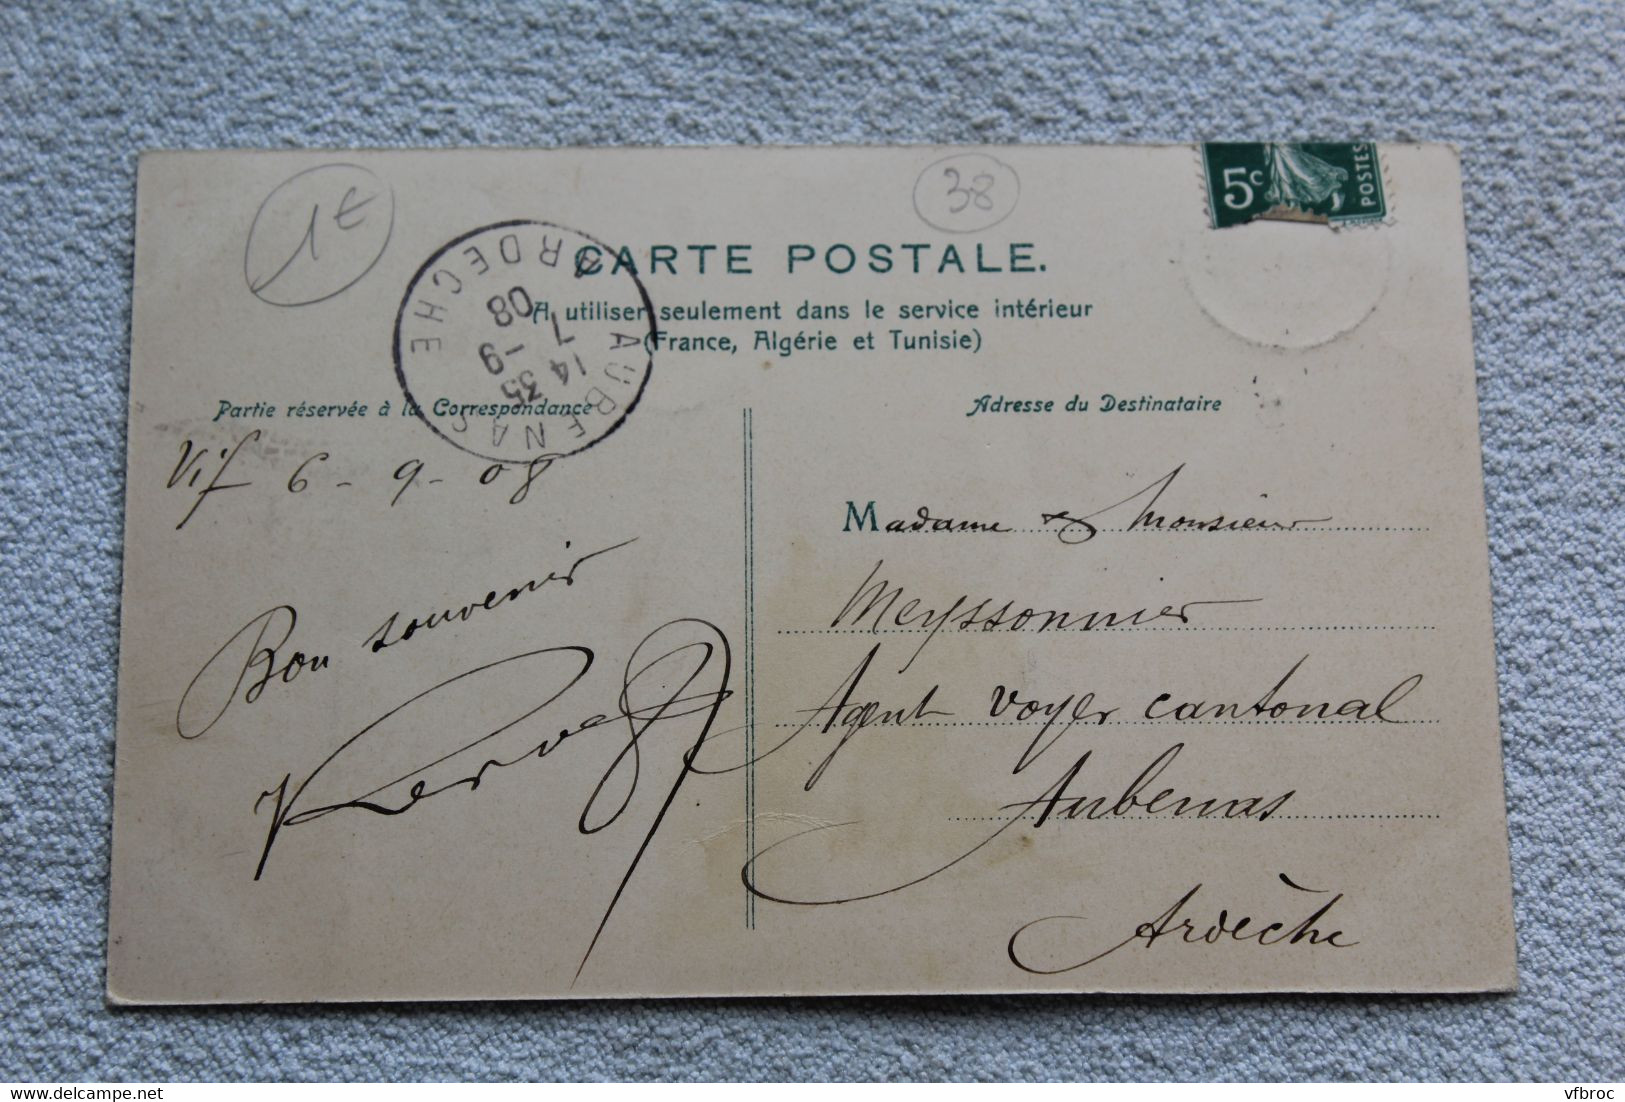 1€
38
5c
POSTES
CARTE POSTALE.
A utiliser seulement dans le service intérieur
(France, Algérie et Tunisie)
AUBENAS
ARDECHE
14 35
7 -9
08
Partie réservée à la Correspondance
Adresse du Destinataire
Vif 6-9-08
Bon souvenir
Madame & Monsieur
Meyssonnier
Agent voyer cantonal
Aubenas
Ardèche
vfbroc